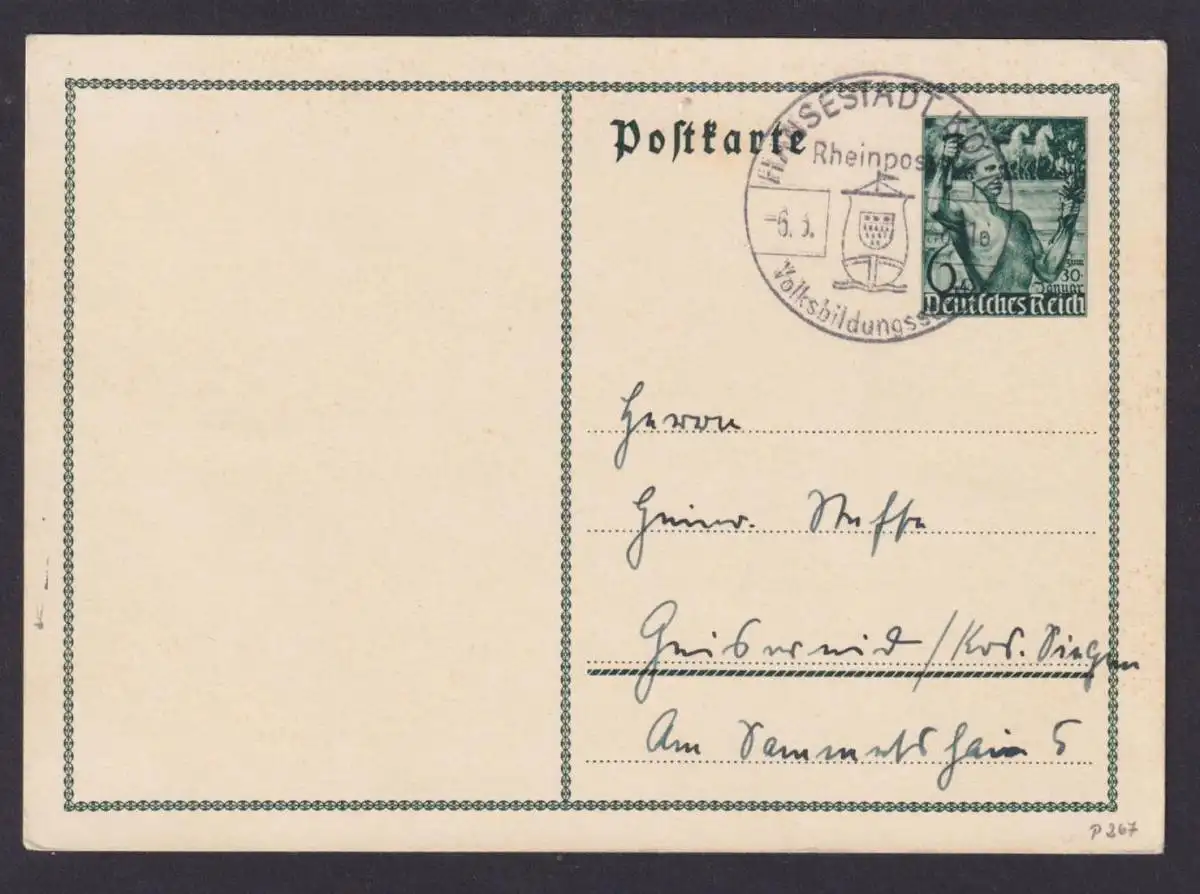 Postkarte
HANSESTADT KÖLN
Rheinpos
-6. 3.
Volksbildungss
6
zum
30.
Januar
Deutsches Reich
Herrn
Heinr. Steffe
Geisweid / Krs. Siegen
Am Sammetshain 5
P 267